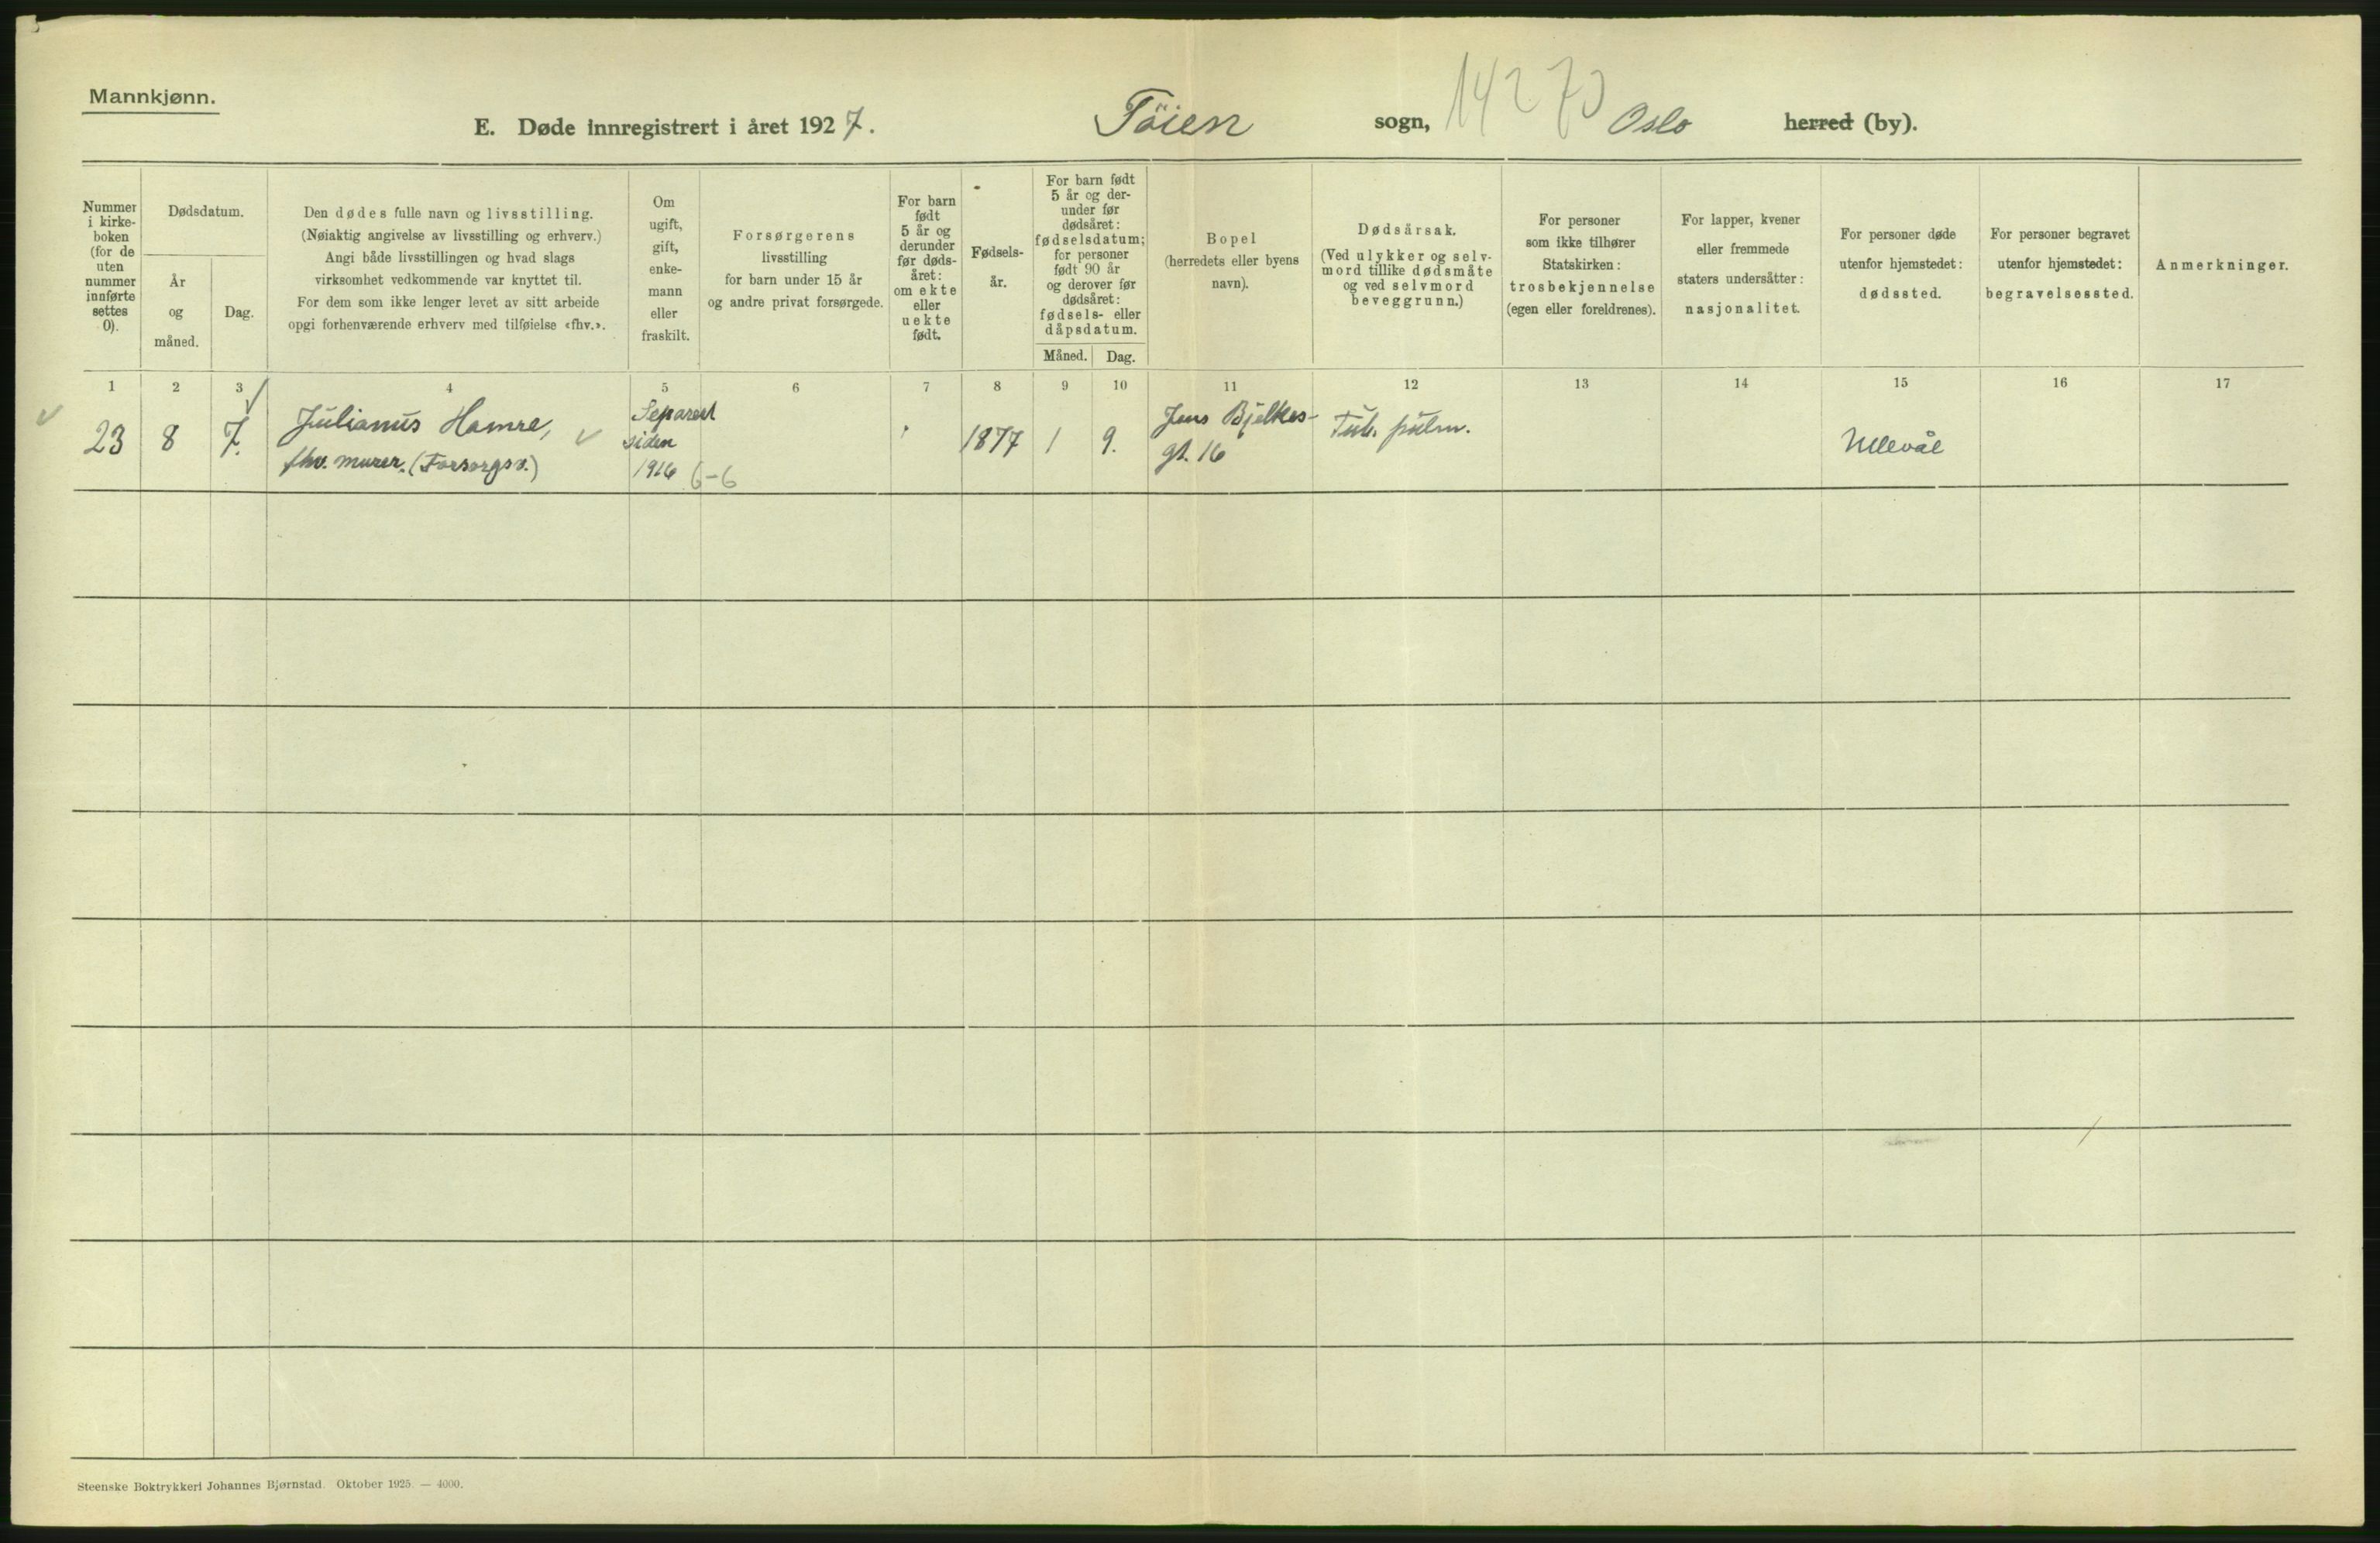 Mannkjønn.
E. Døde innregistrert i året 1927. Töien sogn, Oslo herred (by).
14273
Nummer
i kirke-
boken
(for de
uten
nummer
innførte
settes
0).
Dødsdatum.
År
og
måned.
Dag.
Den dødes fulle navn og livsstilling.
(Nøiaktig angivelse av livsstilling og erhverv.)
Angi både livsstillingen og hvad slags
virksomhet vedkommende var knyttet til.
For dem som ikke lenger levet av sitt arbeide
opgi forhenværende erhverv med tilføielse «fhv.».
Om
ugift,
gift,
enke-
mann
eller
fraskilt.
Forsørgerens
livsstilling
for barn under 15 år
og andre privat forsørgede.
For barn
født
5 år og
derunder
før døds-
året:
om ekte
eller
uekte
født.
Fødsels-
år.
For barn født
5 år og der-
under før
dødsåret:
fødselsdatum;
for personer
født 90 år
og derover før
dødsåret:
fødsels- eller
dåpsdatum.
Måned. Dag.
Bopel
(herredets eller byens
navn).
Dødsårsak.
(Ved ulykker og selv-
mord tillike dødsmåte
og ved selvmord
beveggrunn.)
For personer
som ikke tilhører
Statskirken:
trosbekjennelse
(egen eller foreldrenes).
For lapper, kvener
eller fremmede
staters undersåtter:
nasjonalitet.
For personer døde
utenfor hjemstedet:
dødssted.
For personer begravet
utenfor hjemstedet:
begravelsessted.
Anmerkninger.
1 2 3 4 5 6 7 8 9 10 11 12 13 14 15 16 17
23 8 7.
Julianus Hamre,
fhv. murer. (Forsorgsv.)
Separert
siden
1916 6-6
1877 1 9.
Jens Bjelkes-
gt. 16
Tub. pulm.
Ullevål
Steenske Boktrykkeri Johannes Bjørnstad. Oktober 1925. — 4000.